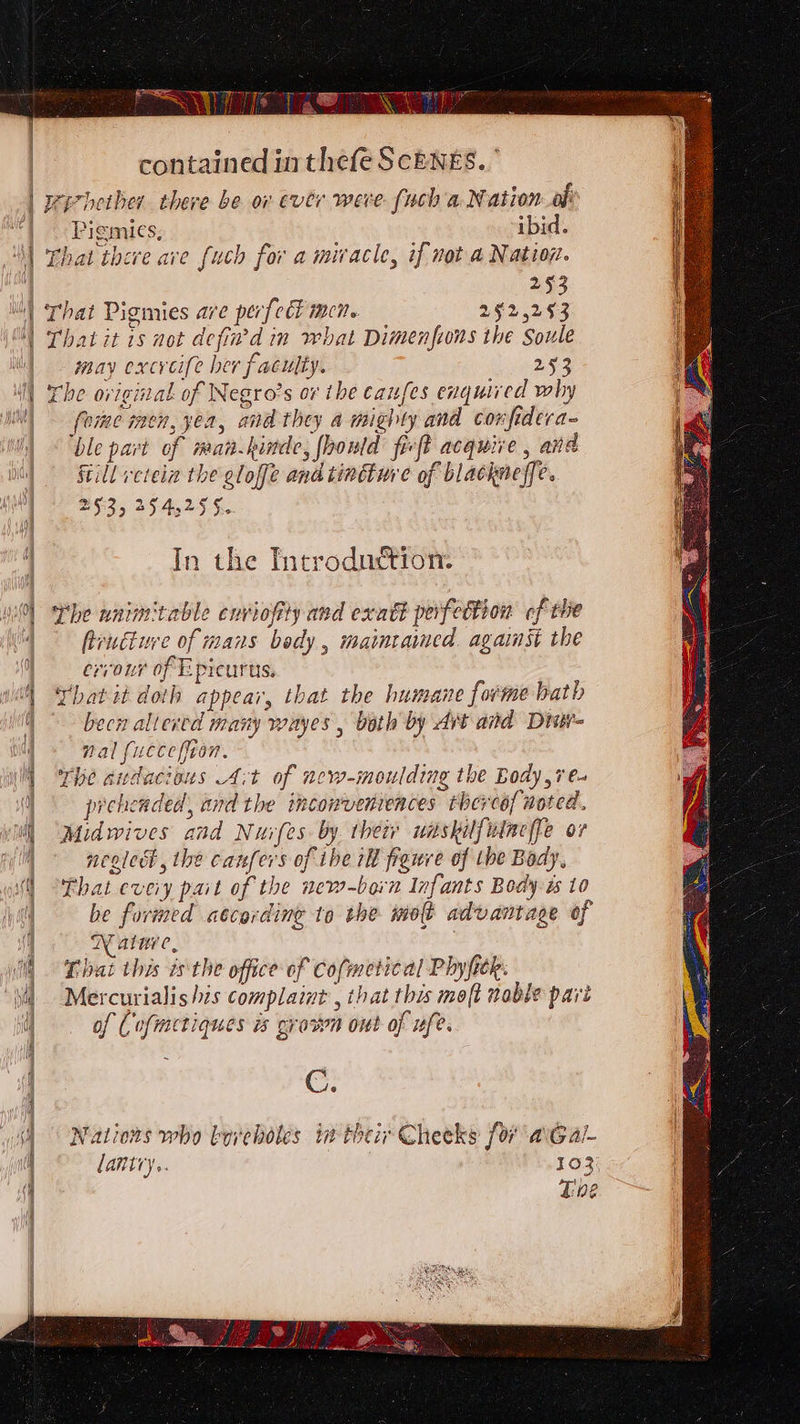 contained in theſe SCENES.
Whether there be or ever were ſuch a Nation of
Pigmies, ibid.
That there are ſuch for a miracle, if not a Nation.
253
That Pigmies are perfect men. 252,253
That it is not defin'd in what Dimenſions the Soule
may exerciſe her faculty. 253
The original of Negro's or the cauſes enquired why
ſome men, yea, and they a mighty and conſidera-
ble part of man-kinde, ſhould firſt acquire, and
Still retein the gloſſe and tincture of blackneſſe.
253, 254,255.
In the Introduction.
The unimitable curioſity and exact perfection of the
ſtructure of mans body, maintained against the
errour of Epicurus.
That it doth appear, that the humane forme hath
been altered many wayes, both by Art and Diur-
nal ſucceſſion.
The audacious Art of new-moulding the Body, re-
prehended, and the inconveniences thereof noted.
Midwives and Nurſes by their unskilfulneſſe or
neglect, the cauſers of the ill figure of the Body.
That every part of the new-born Infants Body is to
be formed according to the moſt advantage of
Nature.
That this is the office of Coſmetical Phyſick.
Mercurialis his complaint, that this moſt noble part
of Coſmetiques is grown out of uſe.
C.
Nations who bore holes in their Cheeks for a Gal-
lantry. 103
The